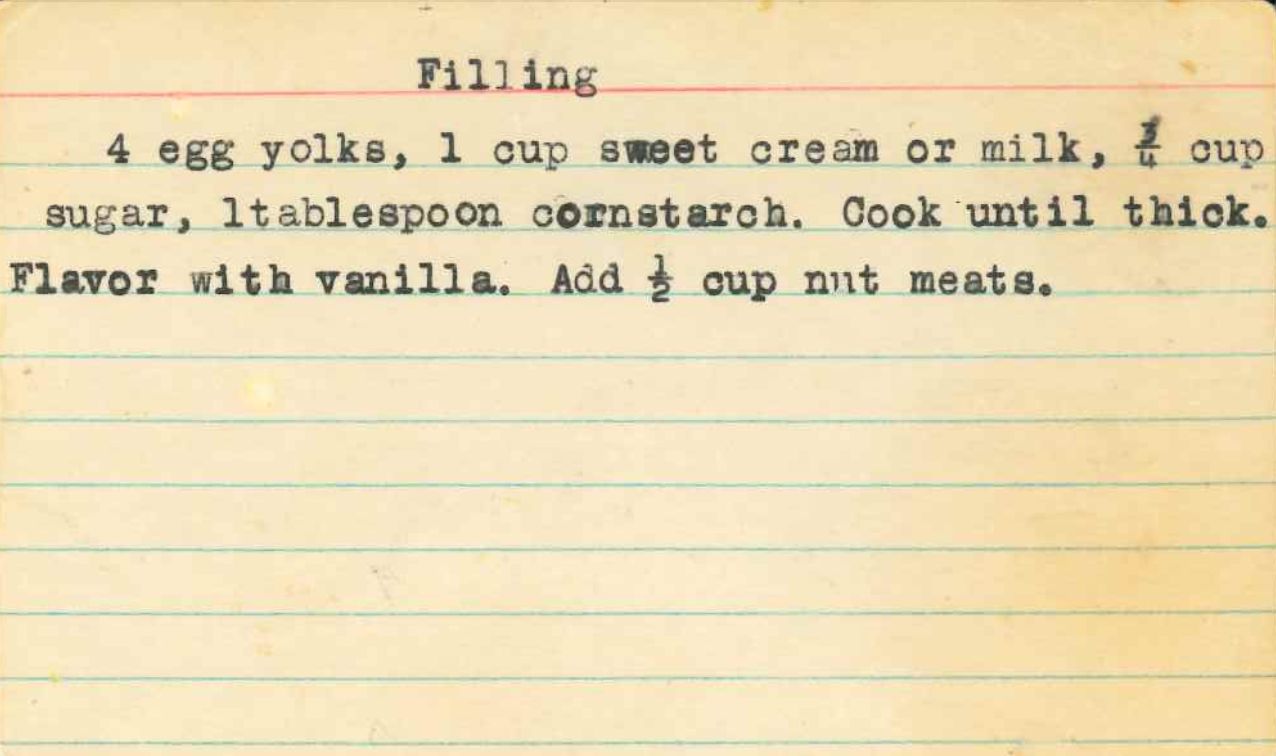 Filling
4 egg yolks, 1 cup sweet cream or milk, ¾ cup
sugar, 1tablespoon cornstarch. Cook until thick.
Flavor with vanilla. Add ½ cup nut meats.